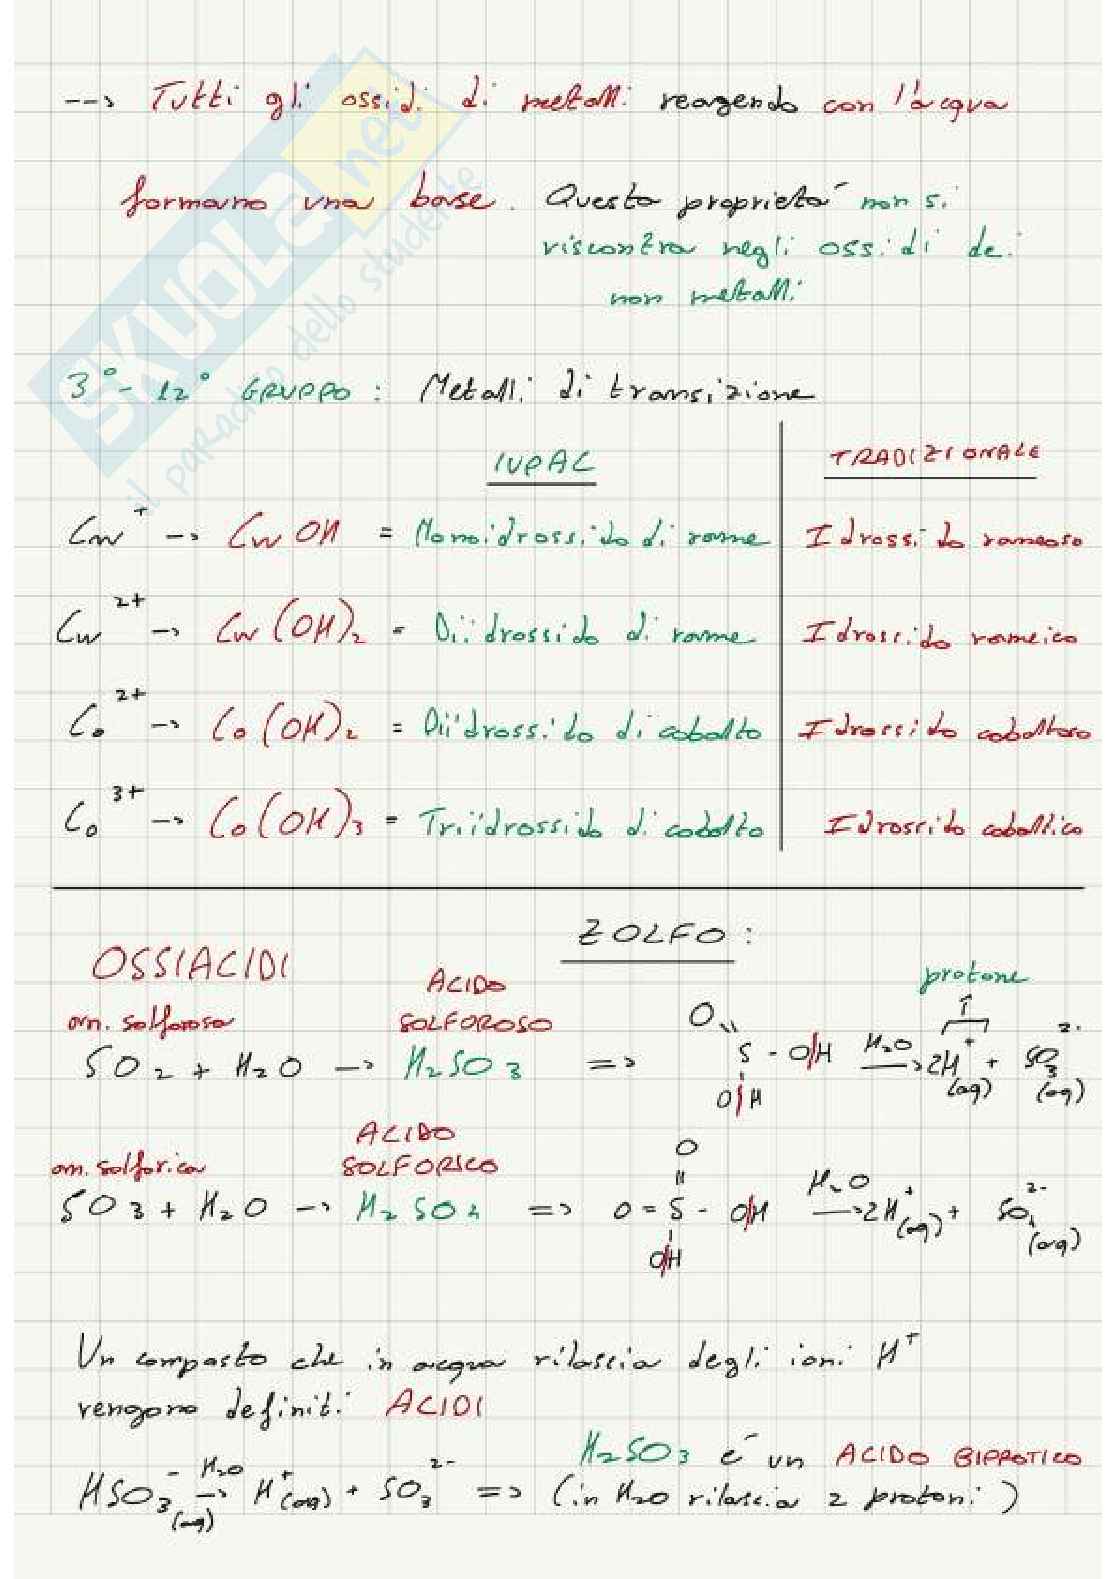 --> Tutti gli ossidi di metalli reagendo con l'acqua
formano una base. Questa proprietà non si
riscontra negli ossidi dei
non metalli
SKUOLA.net
il paradiso dello studente
3° - 12° GRUPPO : Metalli di transizione
IUPAC TRADIZIONALE
Cu⁺ -> CuOH = Monoidrossido di rame Idrossido rameoso
Cu²⁺ -> Cu(OH)₂ = Diidrossido di rame Idrossido rameico
Co²⁺ -> Co(OH)₂ = Diidrossido di cobalto Idrossido cobaltoso
Co³⁺ -> Co(OH)₃ = Triidrossido di cobalto Idrossido cobaltico
ZOLFO :
OSSIACIDI
protone
ACIDO
an. solforosa SOLFOROSO
SO₂ + H₂O -> H₂SO₃ => O = S - OH OH H₂O -> 2H⁺(aq) + SO₃²⁻(aq)
ACIDO
an. solforica SOLFORICO
SO₃ + H₂O -> H₂SO₄ => O = S - OH O OH H₂O -> 2H⁺(aq) + SO₄²⁻(aq)
Un composto che in acqua rilascia degli ioni H⁺
vengono definiti ACIDI
H₂SO₃ è un ACIDO BIPROTICO
HSO₃⁻(aq) H₂O -> H⁺(aq) + SO₃²⁻ => (in H₂O rilascia 2 protoni)